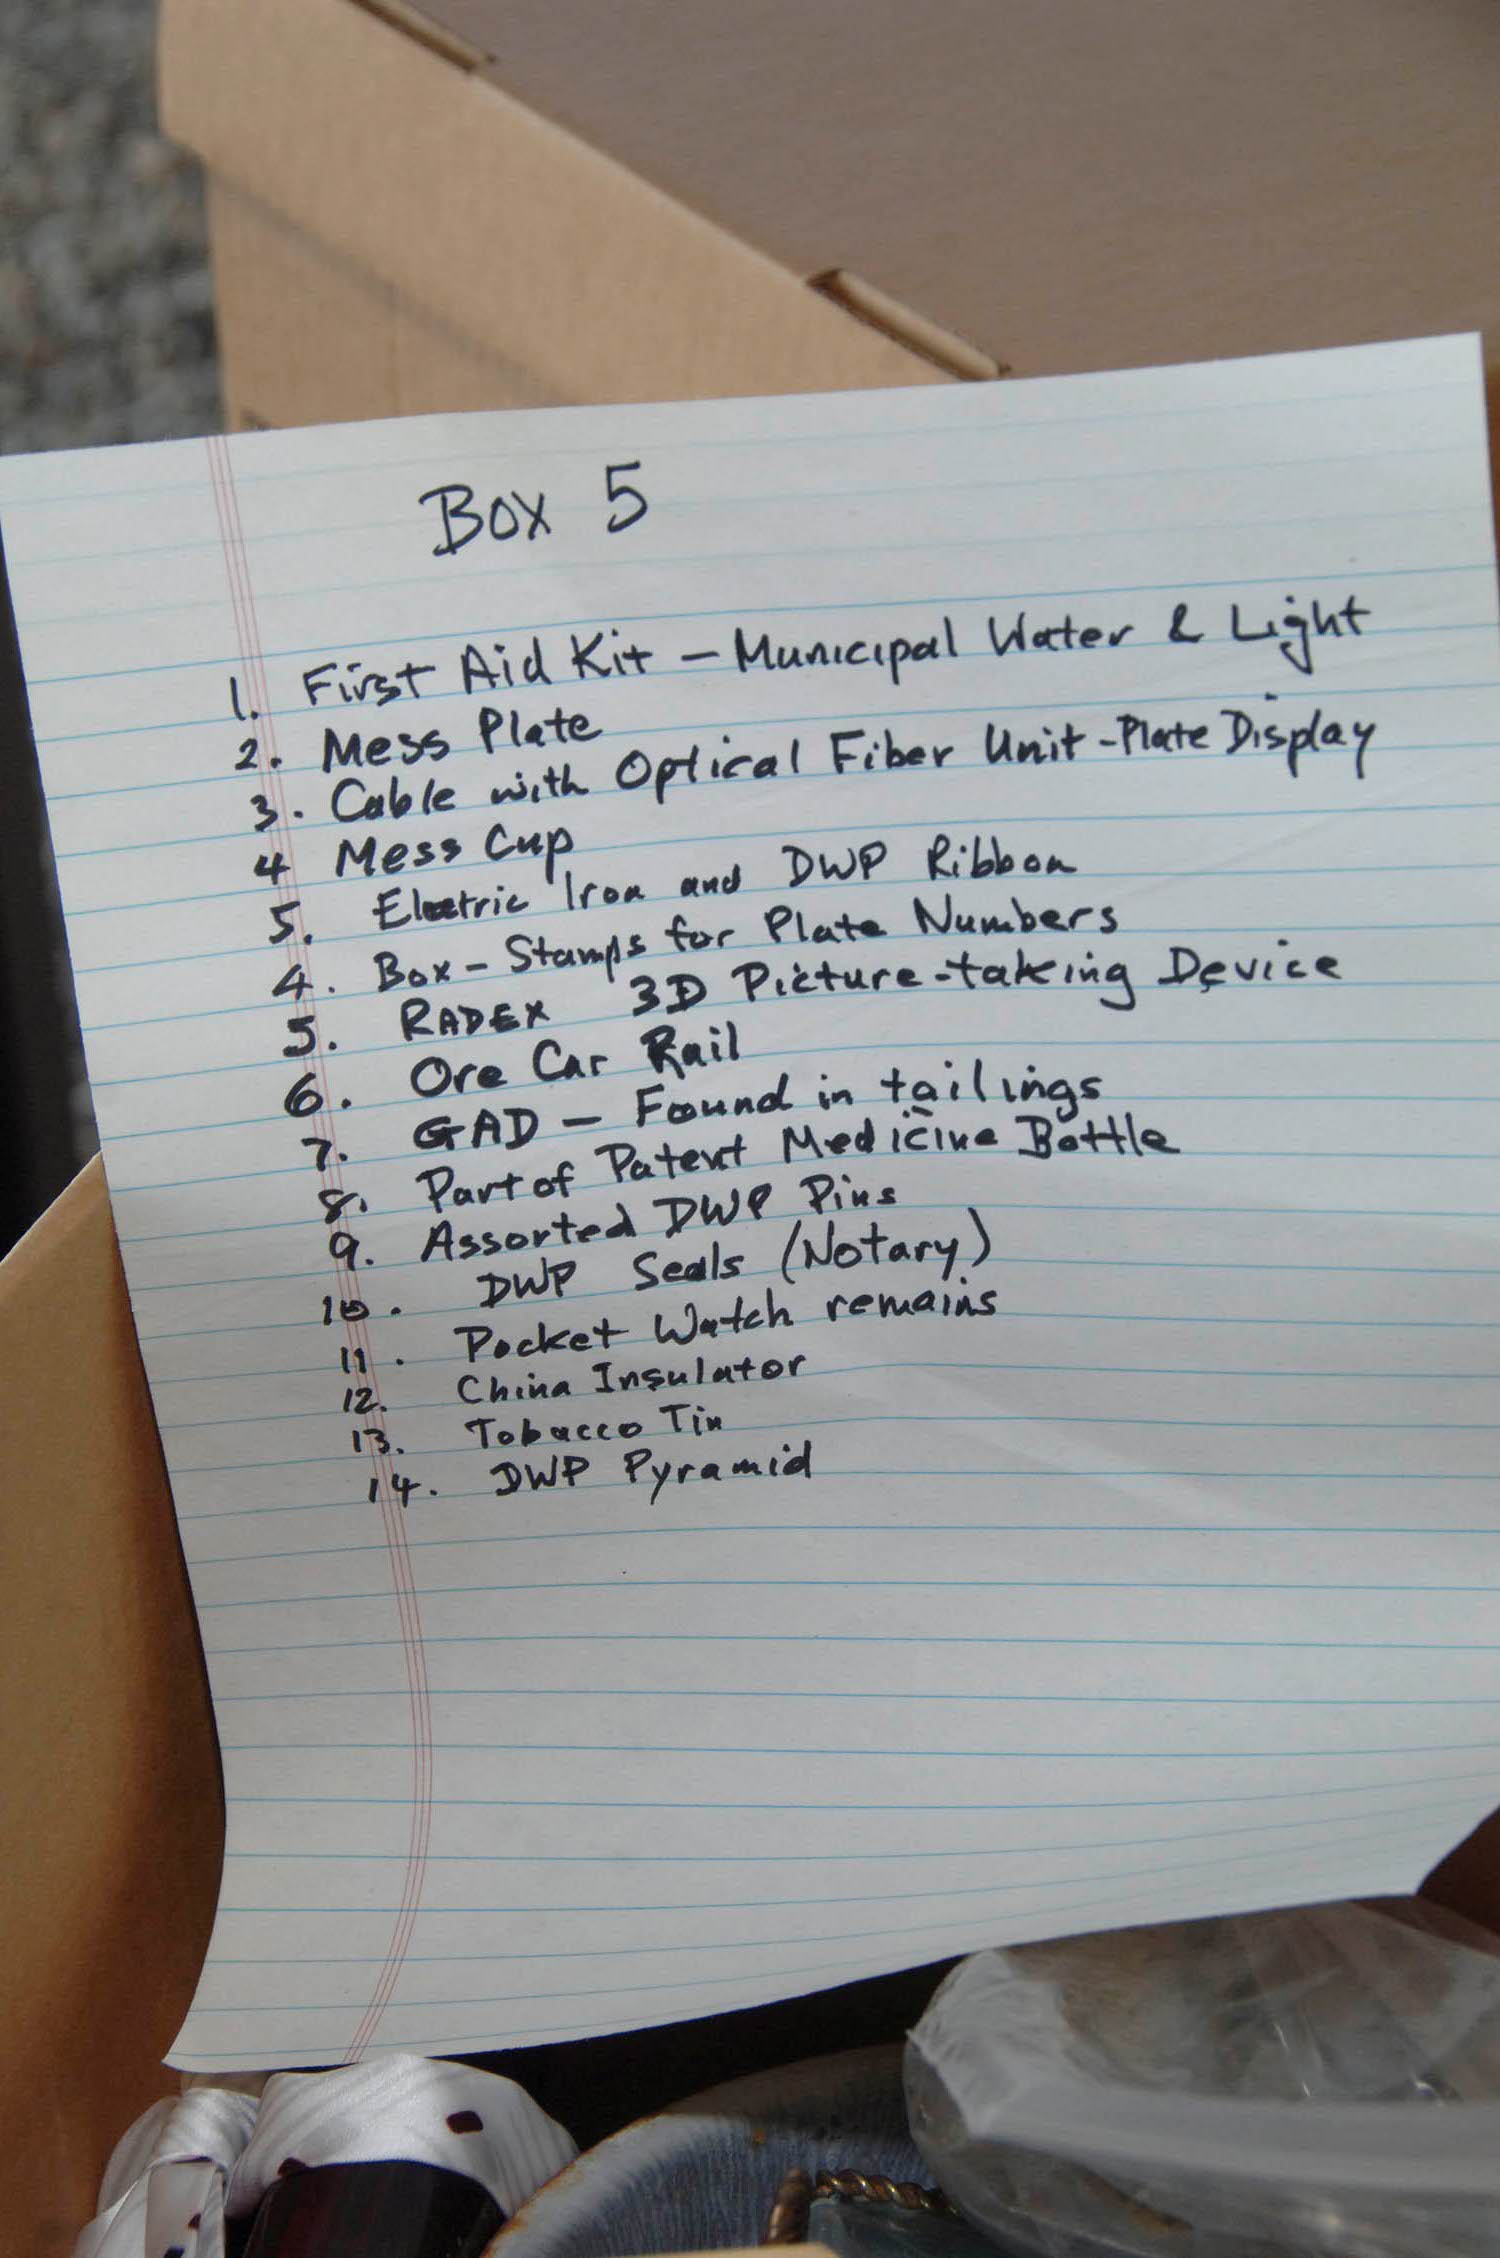 Box 5
1. First Aid Kit – Municipal Water & Light
2. Mess Plate
3. Cable with Optical Fiber Unit - Plate Display
4 Mess Cup
5. Electric Iron and DWP Ribbon
4. Box - Stamps for Plate Numbers
5. RADEX 3D Picture-taking Device
6. Ore Car Rail
7. GAD – Found in tailings
8. Part of Patent Medicine Bottle
9. Assorted DWP Pins
10. DWP Seals (Notary)
11. Pocket Watch remains
12. China Insulator
13. Tobacco Tin
14. DWP Pyramid